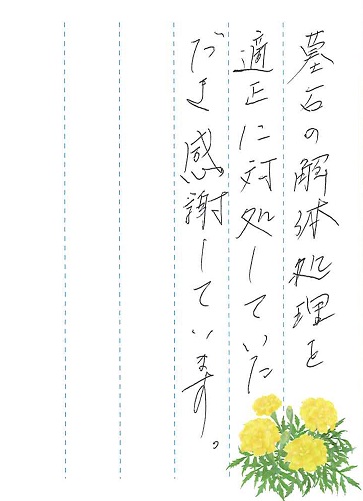 墓石の解体処理を
適正に対処していた
だき感謝しています。